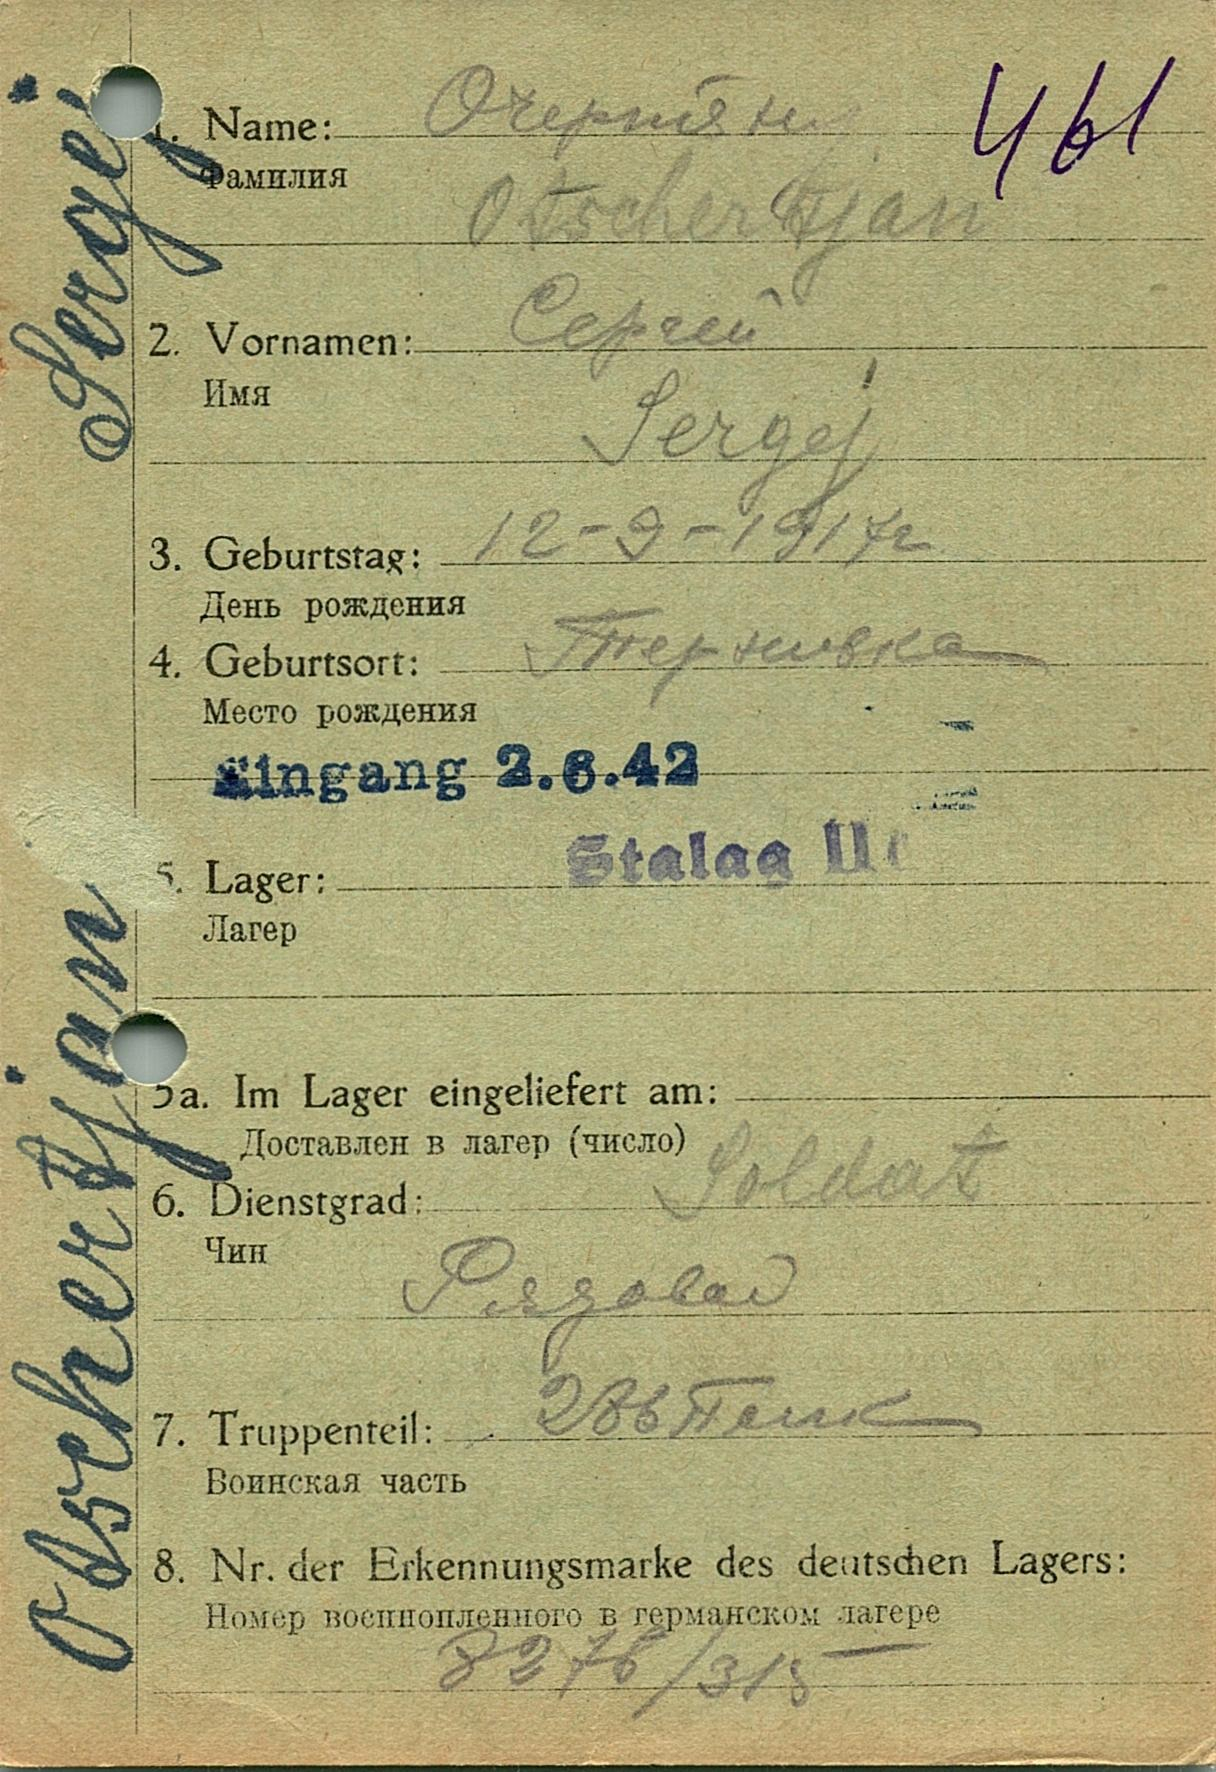 Otschertjan Sergej
461
1. Name: Очертян
Фамилия
Otschertjan
2. Vornamen: Сергей
Имя
Sergej
3. Geburtstag: 12-9-1917г
День рождения
4. Geburtsort: Терновка
Место рождения
Eingang 2.6.42
5. Lager: Stalag II
Лагер
5a. Im Lager eingeliefert am:
Доставлен в лагер (число)
6. Dienstgrad: Soldat
Чин
Рядовой
7. Truppenteil:
Воинская часть
8. Nr. der Erkennungsmarke des deutschen Lagers:
Номер военнопленного в германском лагере
8276/315